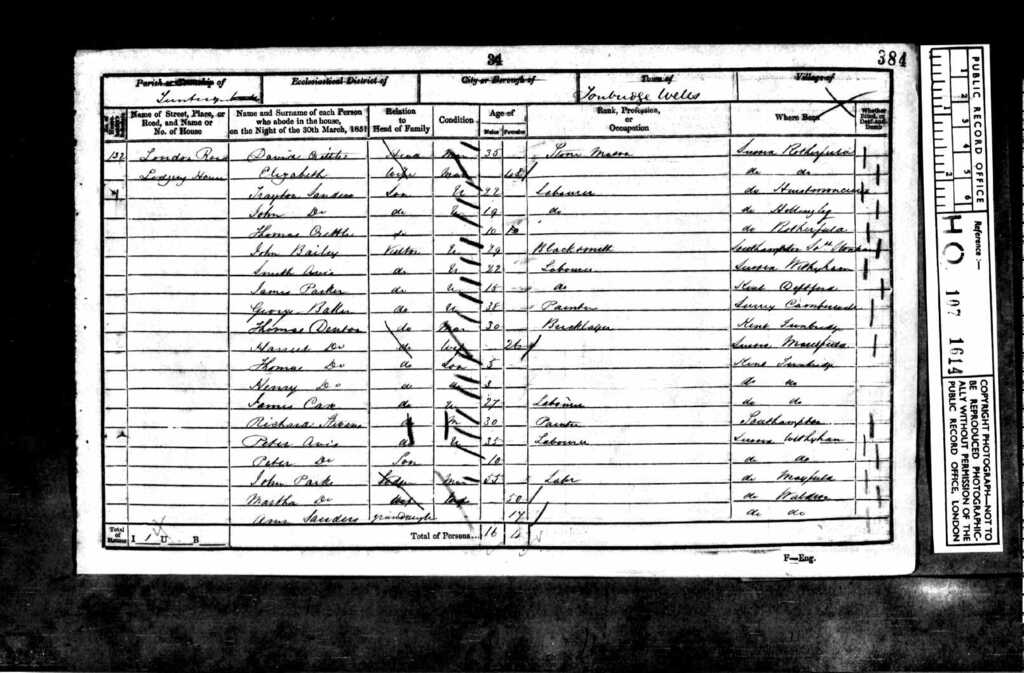 34
384
Parish or Township of
Ecclesiastical District of
City or Borough of
Town of
Tonbridge Wells
Village of
Name of Street, Place, or Road, and Name or No. of House
Name and Surname of each Person who abode in the house, on the Night of the 30th March, 1851
Relation to Head of Family
Condition
Age of
Males Females
Rank, Profession, or Occupation
Where Born
Whether Blind, or Deaf-and-Dumb
132 London Road David Head Mar 35 Stone Mason Sussex Rotherfield
Lodging House Elizabeth Wife Mar 48 do do
Sanders Son U 22 Labourer do
John Do do U 19 do do
Thomas do 10 do Rotherfield
John Bailey Visitor U 29 Blacksmith
Smith Avis do U 22 Labourer Sussex Withyham
James Parker do U 18 do Kent Deptford
George Baker do U 38 Painter Surrey
Thomas Denton do Mar 30 Kent Tunbridge
Harriet Do do Wife 26 Sussex
Thomas Do do Son 5 Kent Tunbridge
Henry Do do do 3 do do
James Cox do U 27 Labourer do do
Richard do M 30 Painter Southampton
Peter Avis do U 35 Labourer Sussex Withyham
Peter Do Son 10 do do
John Park Mar 55 Labr do Mayfield
Martha Do Wife 50 do Waldron
Ann Sanders grandaughter 17 do do
Total of Houses I 1 U B Total of Persons... 16 4
F—Eng.
PUBLIC RECORD OFFICE
1 2 3 4 5 6
Reference :—
HO 107 1614
COPYRIGHT PHOTOGRAPH—NOT TO BE REPRODUCED PHOTOGRAPHICALLY WITHOUT PERMISSION OF THE PUBLIC RECORD OFFICE, LONDON